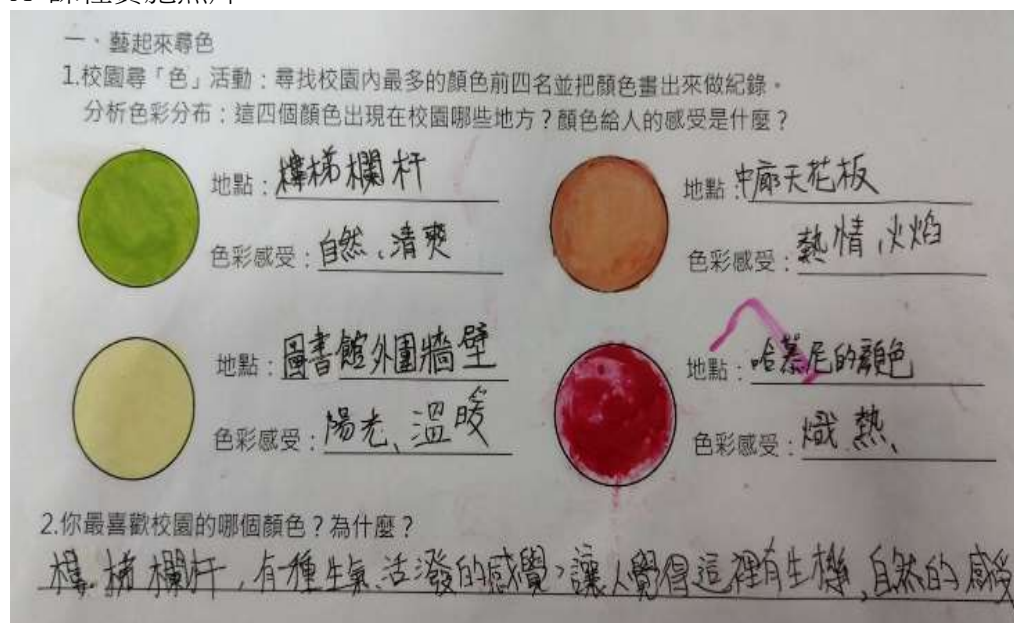 一、藝起來尋色
1.校園尋「色」活動：尋找校園內最多的顏色前四名並把顏色畫出來做紀錄。
分析色彩分布：這四個顏色出現在校園哪些地方？顏色給人的感受是什麼？
地點：樓梯欄杆
色彩感受：自然、清爽
地點：中廊天花板
色彩感受：熱情、火焰
地點：圖書館外圍牆壁
色彩感受：陽光、溫暖
地點：哈慕尼的顏色
色彩感受：熾熱、
2.你最喜歡校園的哪個顏色？為什麼？
樓梯欄杆，有種生氣活潑的感覺，讓人覺得這裡有生機，自然的感受